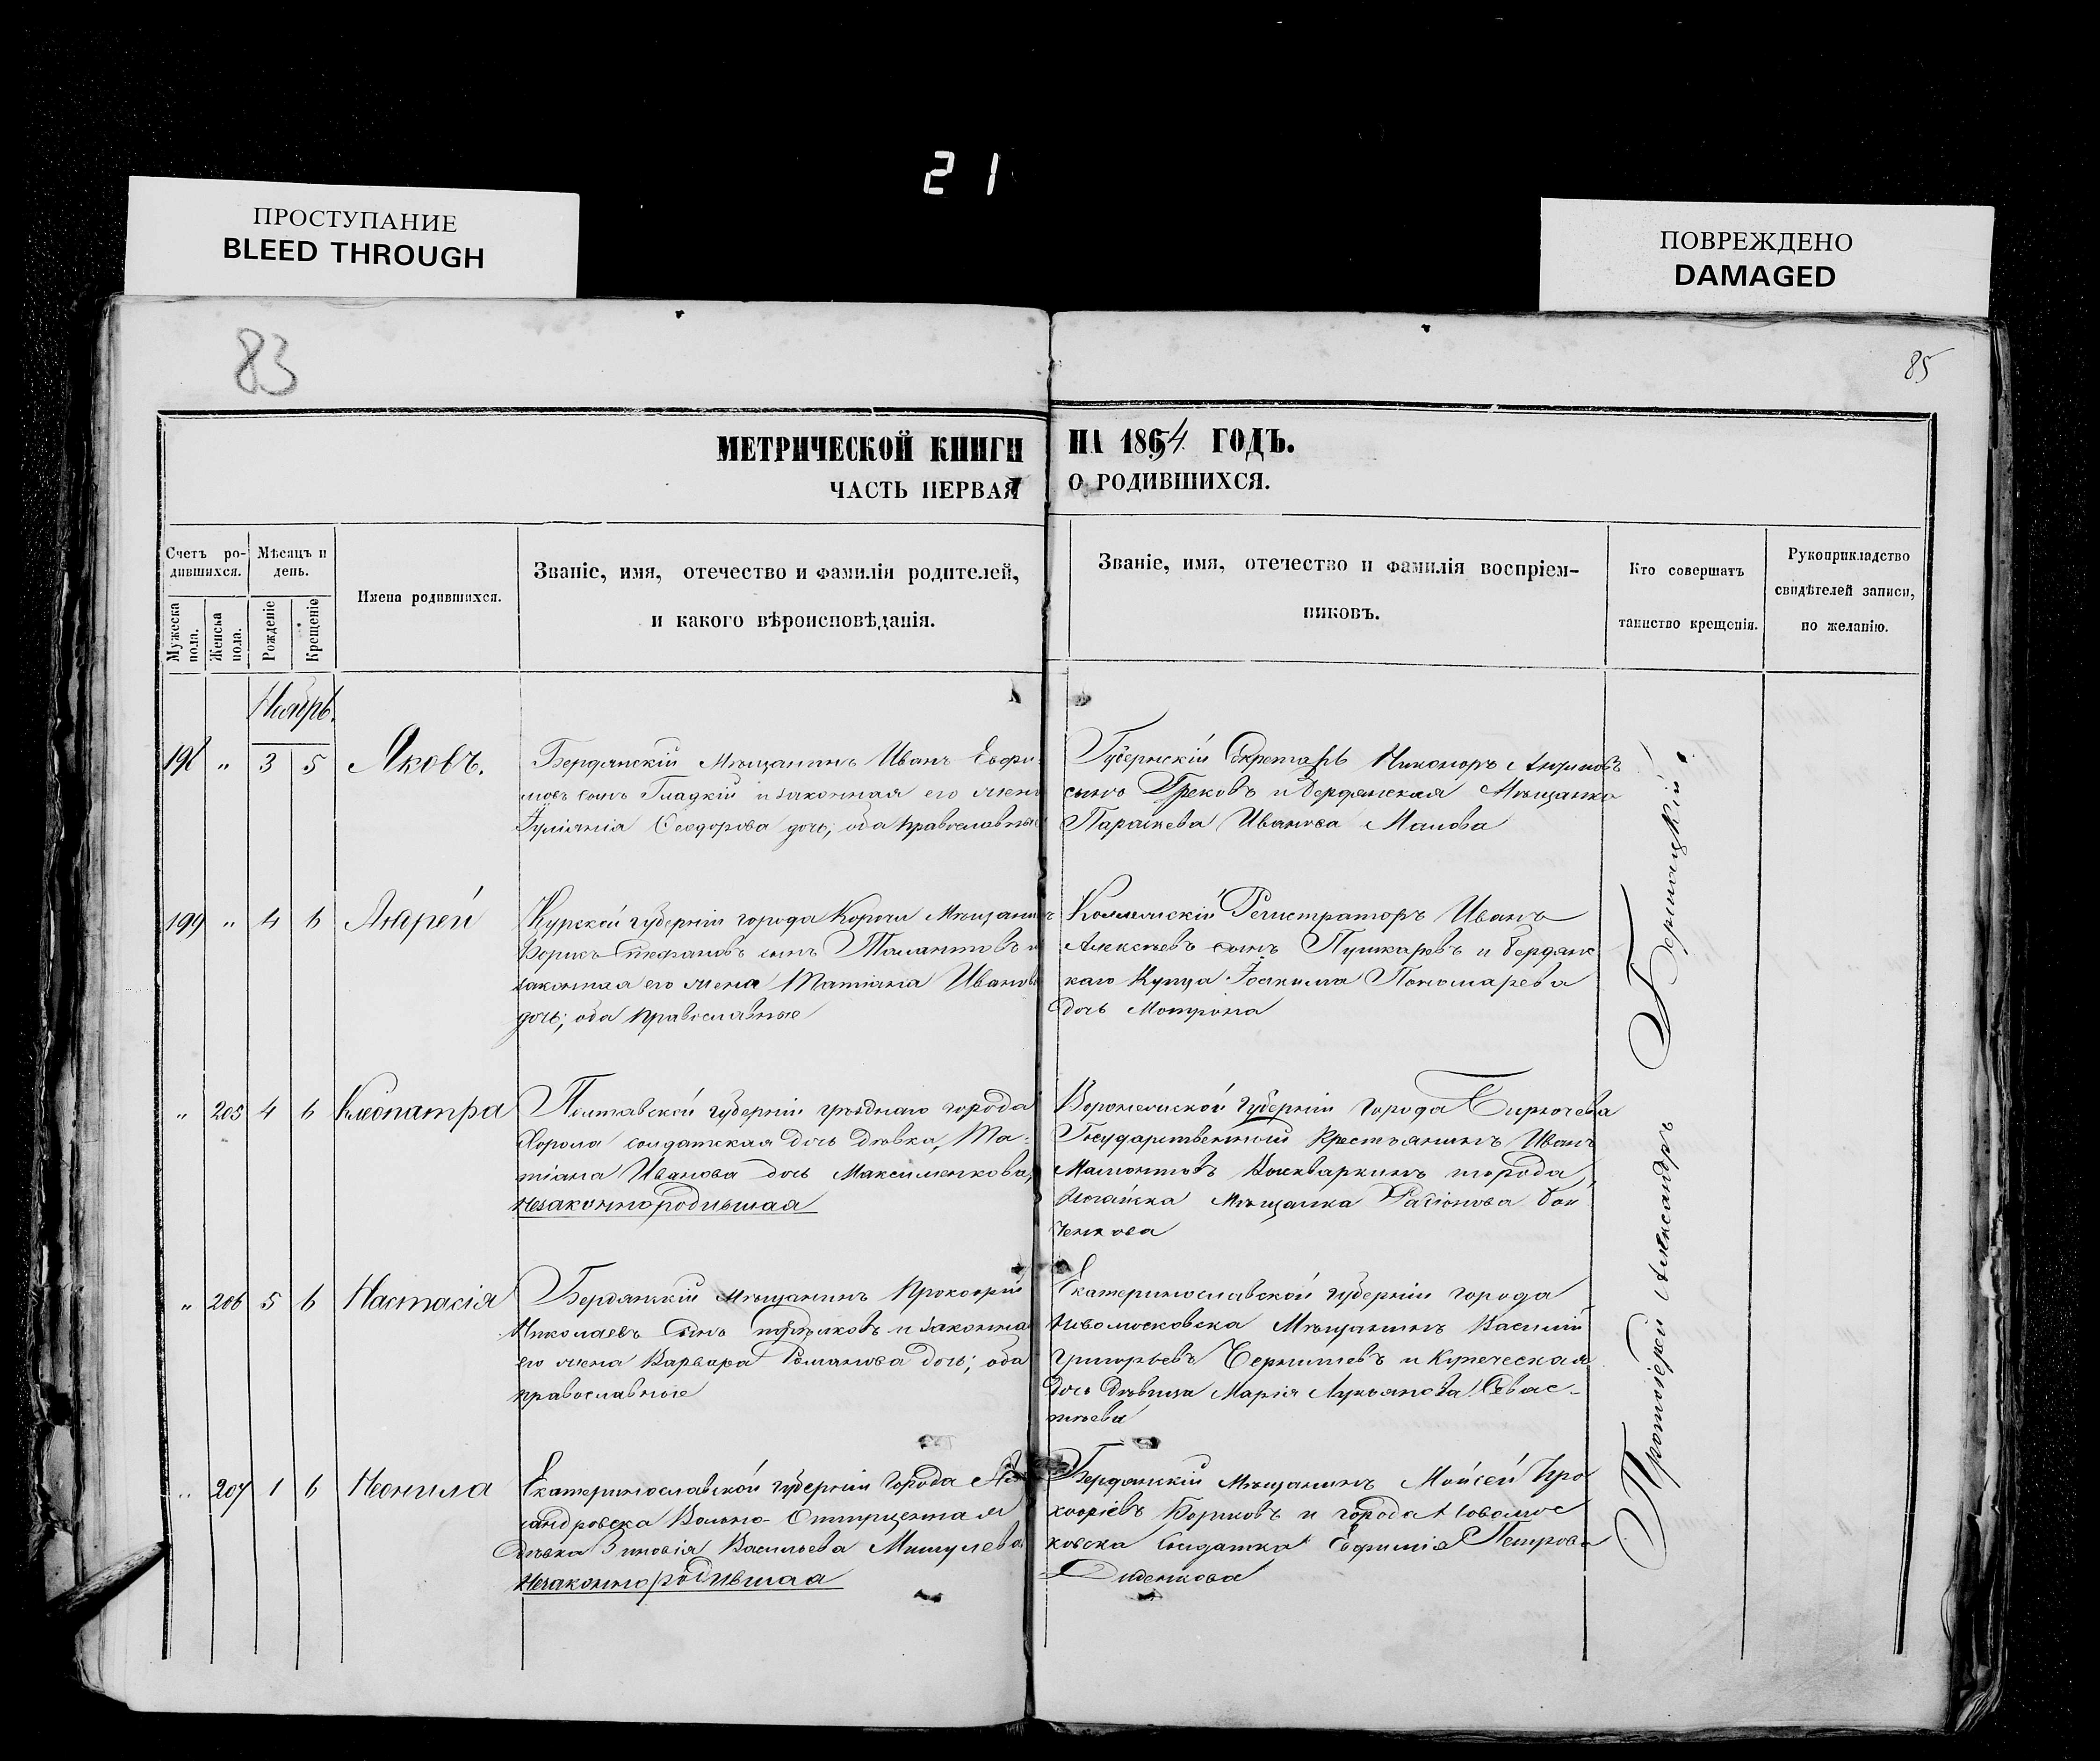 21
ПРОСТУПАНИЕ
BLEED THROUGH
ПОВРЕЖДЕНО
DAMAGED
83
85
МЕТРИЧЕСКОЙ КНИГИ НА 1864 ГОДЪ.
ЧАСТЬ ПЕРВАЯ О РОДИВШИХСЯ.
Счетъ ро-
дившихся.
Мужеска пола.
Женска пола.
Мѣсяцъ и
день.
Рожденіе
Крещеніе
Имена родившихся.
Званіе, имя, отечество и фамилія родителей,
и какого вѣроисповѣданія.
Званіе, имя, отечество и фамилія воспріем-
никовъ.
Кто совершатъ
таинство крещенія.
Рукоприкладство
свидѣтелей записи,
по желанію.
Ноябрь.
198 " 3 5 Яковъ.
Бердянскій Мѣщанинъ Иванъ Евфи
мовъ сынъ Гладкій и законная его жена
Іуліанія Ѳеодорова дочь, оба православные
Губернскій Секретарь Никаноръ
сынъ Грековъ и Бердянская Мѣщанка
Параскева Иванова
199 " 4 6 Андрей
Курской губерніи города Корочи Мѣщанинъ
Борисъ Стефановъ сынъ Талантовъ и
законная его жена Татіана Иванова
дочь, оба православные
Коллежскій Регистраторъ Иванъ
Алексѣевъ сынъ Пушкаревъ и бердянс
каго Купца Іоакима Пономарева
дочь Мотрона
" 205 4 6 Клеопатра
Полтавской губерніи уѣзднаго города
Хорола солдатская дочь дѣвка, Та-
тіана Иванова дочь Максименкова,
Незаконнородившая
Воронежской губерніи города Бирючева
Государственный Крестьянинъ Иванъ
Мамонтовъ города
Ногайска Мѣщанка Родіонова
ченкова
" 206 5 6 Настасія
Бердянскій Мѣщанинъ Прокофій
Николаевъ Сынъ и законная
его жена Варвара Романова дочь; оба
православные
Екатеринославской губерніи города
Новомосковска Мѣщанинъ Василій
Григорьевъ Чернышевъ и купеческая
дочь дѣвица Марія Лукьянова Севас-
тьева
" 207 1 6 Неонила
Екатеринославской губерніи города Алек
сандровска Вольно-Отпущенная
Дѣвка Зиновія Васильева
Незаконнородившая
Бердянскій Мѣщанинъ Мойсей Про
кофіевъ Борисовъ и города Новомос
ковска Солдатка Евфимія Петрова
Диденкова
Протоіерей Александръ